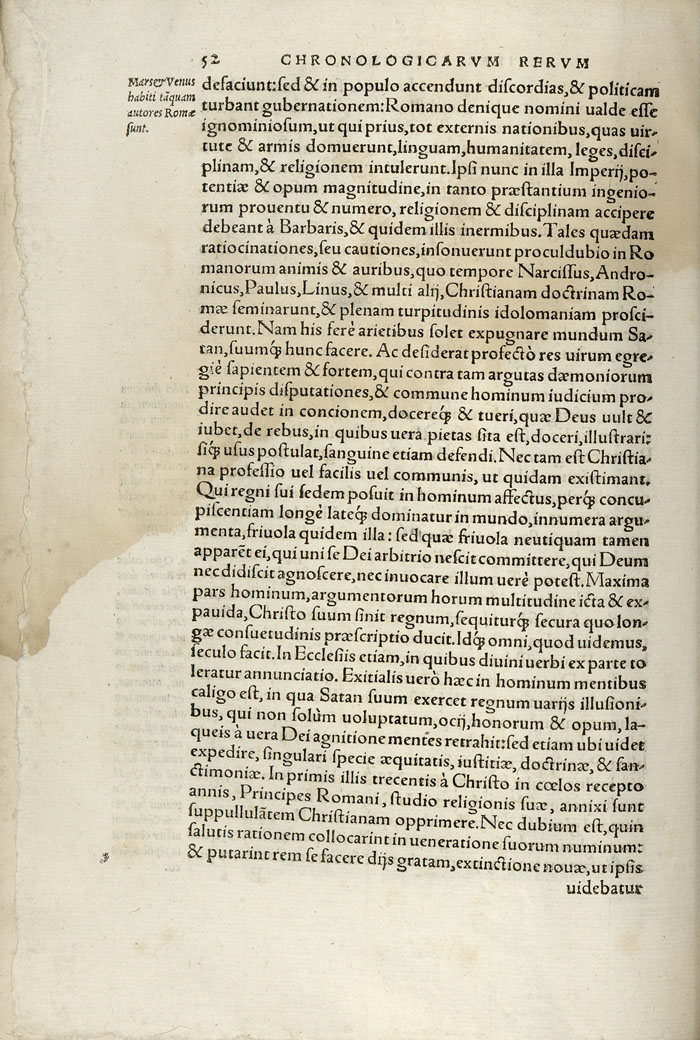 52 CHRONOLOGICARVM RERVM
Mars et Venus
habiti tãquam
autores Romæ
sunt.
defaciunt:sed & in populo accendunt discordias,& politicam
turbant gubernationem:Romano denique nomini ualde esse
ignominiosum,ut qui prius,tot externis nationibus,quas uir-
tute & armis domuerunt,linguam,humanitatem, leges,disci-
plinam,& religionem intulerunt.Ipsi nunc in illa Imperij,po-
tentiæ & opum magnitudine,in tanto præstantium ingenio-
rum prouentu & numero, religionem & disciplinam accipere
debeant à Barbaris,& quidem illis inermibus. Tales quædam
ratiocinationes,seu cautiones,insonuerunt proculdubio in Ro
manorum animis & auribus,quo tempore Narcissus,Andro-
nicus,Paulus,Linus,& multi alij,Christianam doctrinam Ro-
mæ seminarunt,& plenam turpitudinis idolomaniam prosci-
derunt. Nam his ferè arietibus solet expugnare mundum Sa-
tan,suumq́; hunc facere. Ac desiderat profectò res uirum egre-
giè sapientem & fortem,qui contra tam argutas dæmoniorum
principis disputationes,& commune hominum iudicium pro-
dire audet in concionem,docereq́; & tueri,quæ Deus uult &
iubet,de rebus,in quibus uera pietas sita est,doceri,illustrari:
siq́; usus postulat,sanguine etiam defendi. Nec tam est Christia-
na professio uel facilis uel communis, ut quidam existimant.
Qui regni sui sedem posuit in hominum affectus,perq́; concu-
piscentiam longè lateq́; dominatur in mundo,innumera argu-
menta,friuola quidem illa: sed quæ friuola neutiquam tamen
apparẽt ei,qui uni se Dei arbitrio nescit committere,qui Deum
nec didiscit agnoscere,nec inuocare illum uerè potest. Maxima
pars hominum,argumentorum horum multitudine icta & ex-
pauida,Christo suum sinit regnum,sequiturq́; secura quo lon-
gæ consuetudinis præscriptio ducit.Idq́; omni,quod uidemus,
seculo facit.In Ecclesiis etiam,in quibus diuini uerbi ex parte to
leratur annunciatio. Exitialis uerò hæc in hominum mentibus
caligo est, in qua Satan suum exercet regnum uarijs illusioni-
bus, qui non solùm uoluptatum,ocij,honorum & opum, la-
queis à uera Dei agnitione mentes retrahit:sed etiam ubi uidet
expedire, singulari specie æquitatis, iustitiæ, doctrinæ, & san-
ctimoniæ. In primis illis trecentis à Christo in cœlos recepto
annis, Principes Romani, studio religionis suæ, annixi sunt
suppullulãtem Christianam opprimere. Nec dubium est,quin
salutis rationem collocarint in ueneratione suorum numinum:
& putarint rem se facere dijs gratam,extinctione nouæ,ut ipsis
uidebatur